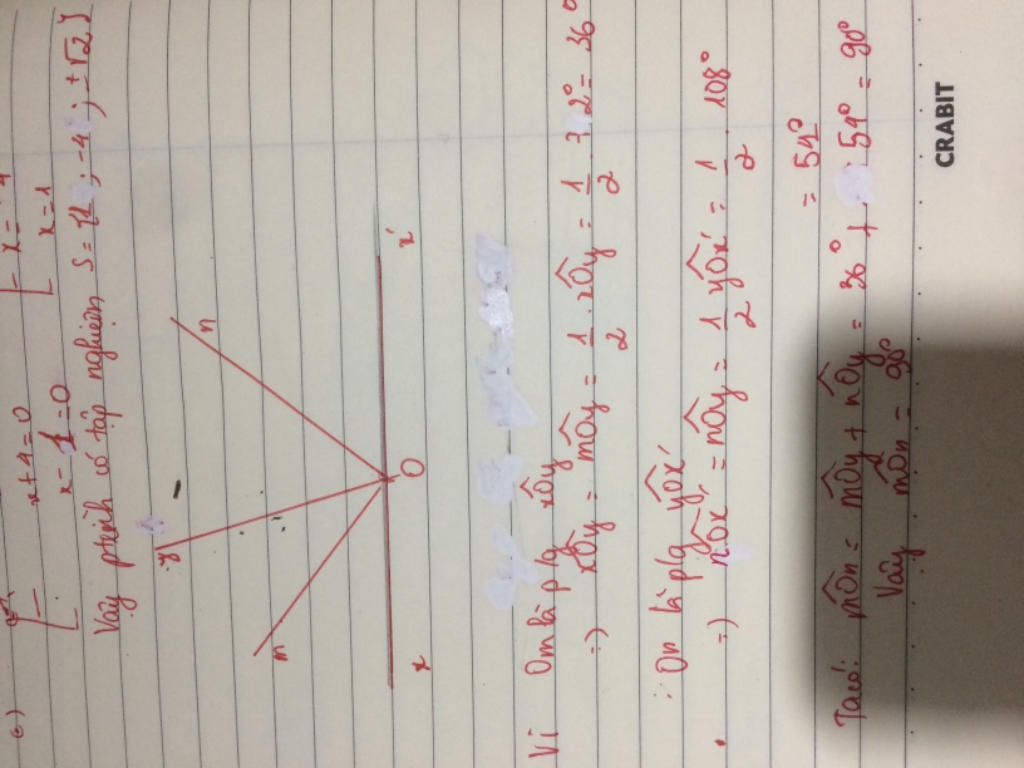 c)
x+4=0
x-1=0
x=1
Vậy ptrinh có tập nghiệm S={1; -4; ±√2}
y
n
m
O
x
x'
Vì Om là p/g xÔy
=) xÔm = mÔy = 1/2 . xÔy = 1/2 . 72° = 36°
On là p/g yÔx'
=) nÔx' = nÔy = 1/2 yÔx' = 1/2 . 108°
= 54°
Ta có: mÔn = mÔy + nÔy = 36° + 54° = 90°
Vậy mÔn = 90°
CRABIT